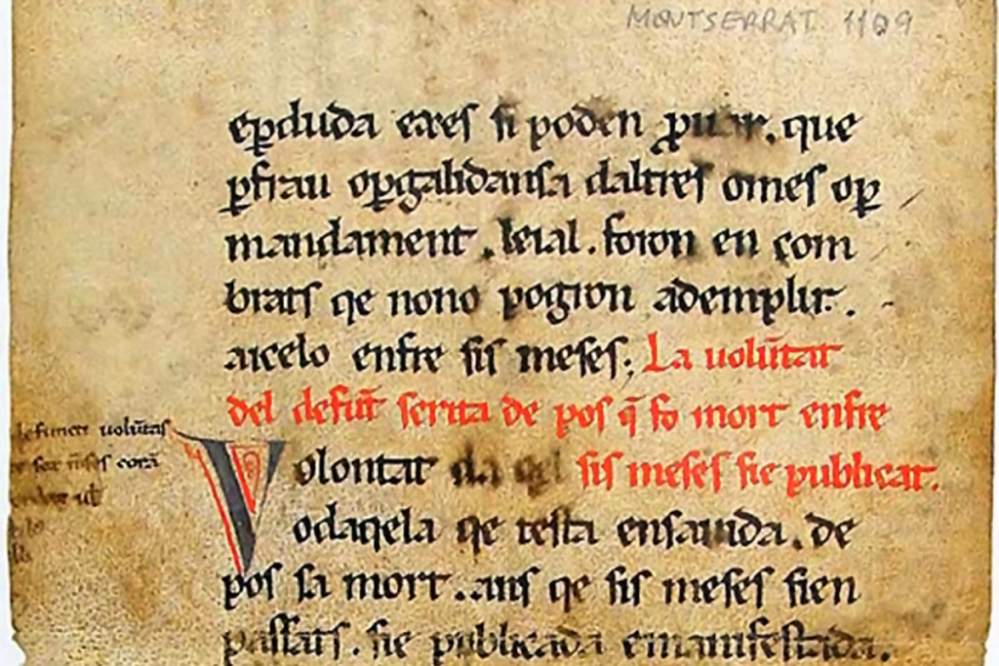 MONTSERRAT 1109
eperduda eares si poden
que
perfrau opergalidansa daltres omes oper
mandament . leial . foron en com
brats qe nono pogron ademplir .
aicelo enfre sis meses : La uolūtat
del defūt scrita de pos q̄ fo mort enfre
Volontat
sis meses sie publicat .
odaqela qe testa ensauida . de
pos sa mort . ans qe sis meses sien
passats . sie publicada emanifestada .
defuncti uolūtas